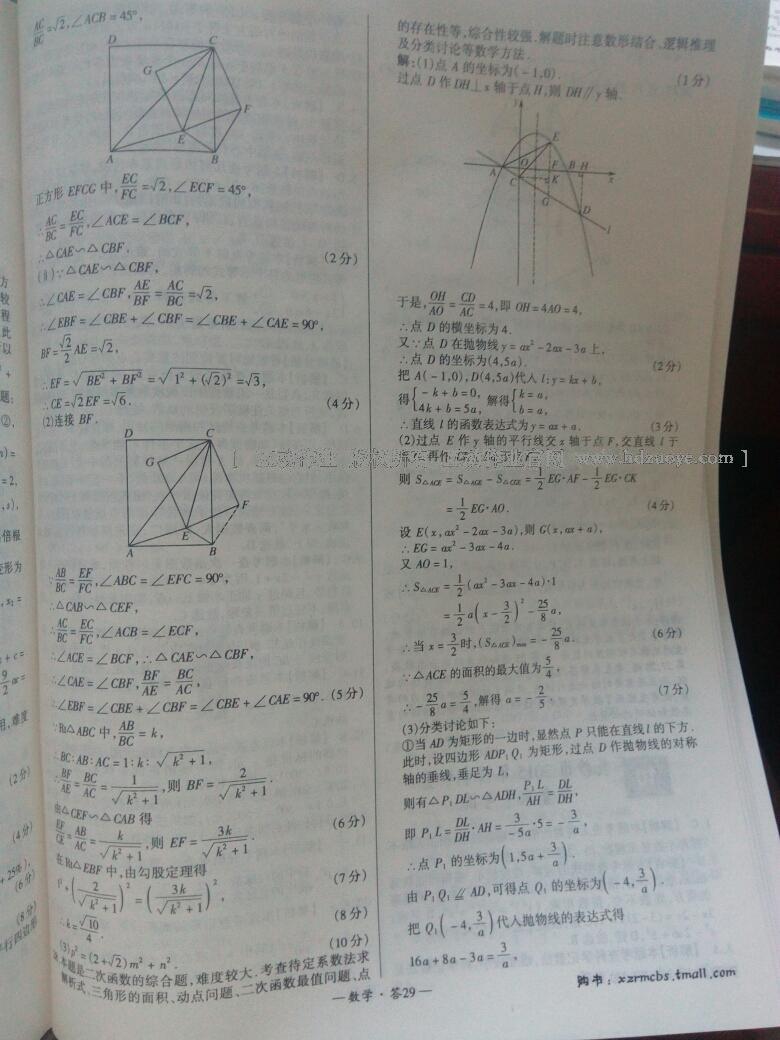 AC/BC=√2,∠ACB=45°,
D C
G
F
E
A B
正方形 EFCG 中,EC/FC=√2,∠ECF=45°,
∴AC/BC=EC/FC,∠ACE=∠BCF,
∴△CAE∽△CBF. (2分)
(ⅱ)∵△CAE∽△CBF,
∴∠CAE=∠CBF,AE/BF=AC/BC=√2,
∴∠EBF=∠CBE+∠CBF=∠CBE+∠CAE=90°,
BF=√2/2 AE=√2,
∴EF=√(BE²+BF²)=√(1²+(√2)²)=√3,
∴CE=√2EF=√6. (4分)
(2)连接 BF.
D C
G
F
E
A B
∵AB/BC=EF/FC,∠ABC=∠EFC=90°,
∴△CAB∽△CEF,
∴AC/BC=EC/FC,∠ACB=∠ECF,
∴∠ACE=∠BCF,∴△CAE∽△CBF,
∴∠CAE=∠CBF,BF/AE=BC/AC,
∴∠EBF=∠CBE+∠CBF=∠CBE+∠CAE=90°. (5分)
∵Rt△ABC 中,AB/BC=k,
∴BC:AB:AC=1:k:√(k²+1),
∴BF/AE=BC/AC=1/√(k²+1),则 BF=2/√(k²+1).
由△CEF∽△CAB 得 (6分)
EF/CE=AB/AC=k/√(k²+1),则 EF=3k/√(k²+1).
在 Rt△EBF 中,由勾股定理得 (7分)
1²+(2/√(k²+1))²=(3k/√(k²+1))²,
∴k=√10/4. (8分)
(3)p²=(2+√2)m²+n². (10分)
本题是二次函数的综合题,难度较大.考查待定系数法求
解析式、三角形的面积、动点问题、二次函数最值问题、点
的存在性等,综合性较强.解题时注意数形结合、逻辑推理
及分类讨论等数学方法.
解:(1)点 A 的坐标为(-1,0). (1分)
过点 D 作 DH⊥x 轴于点 H,则 DH∥y 轴.
y
E
A O F B H
C K x
G
D
l
于是,OH/AO=CD/AC=4,即 OH=4AO=4,
∴点 D 的横坐标为 4.
又∵点 D 在抛物线 y=ax²-2ax-3a 上,
∴点 D 的坐标为(4,5a). (2分)
把 A(-1,0),D(4,5a)代入 l:y=kx+b,
得{-k+b=0, 4k+b=5a, 解得{k=a, b=a,
∴直线 l 的函数表达式为 y=ax+a. (3分)
(2)过点 E 作 y 轴的平行线交 x 轴于点 F,交直线 l 于
www.hdzuoye.com ]
则 S△ACE=S△AGE-S△CGE=1/2 EG·AF-1/2 EG·CK
=1/2 EG·AO. (4分)
设 E(x,ax²-2ax-3a),则 G(x,ax+a),
∴EG=ax²-3ax-4a.
又 AO=1,
∴S△ACE=1/2(ax²-3ax-4a)·1
=1/2 a(x-3/2)²-25/8 a,
∴当 x=3/2时,(S△ACE)max=-25/8 a. (6分)
∵△ACE 的面积的最大值为5/4,
∴-25/8 a=5/4,解得 a=-2/5. (7分)
(3)分类讨论如下:
①当 AD 为矩形的一边时,显然点 P 只能在直线 l 的下方.
此时,设四边形 ADP₁Q₁ 为矩形,过点 D 作抛物线的对称
轴的垂线,垂足为 L,
则有△P₁DL∽△ADH,P₁L/AH=DL/DH,
即 P₁L=DL/DH·AH=3/-5a·5=-3/a,
∴点 P₁ 的坐标为(1,5a+3/a).
由 P₁Q₁⫽AD,可得点 Q₁ 的坐标为(-4,3/a).
把 Q₁(-4,3/a)代入抛物线的表达式得
16a+8a-3a=3/a,
购书:xzrmcbs.tmall.com
—数学·答29—